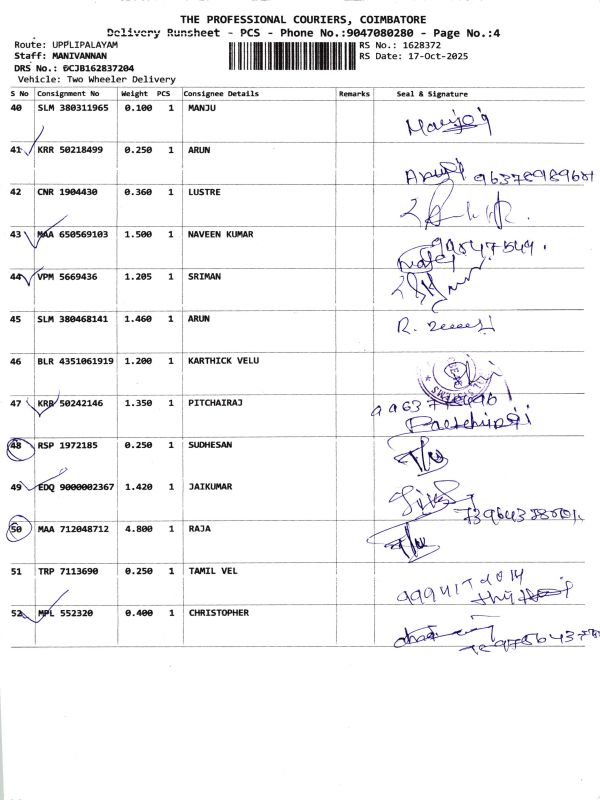 THE PROFESSIONAL COURIERS, COIMBATORE
Delivery Runsheet - PCS - Phone No.:9047080280 - Page No.:4
Route: UPPLIPALAYAM RS No.: 1628372
Staff: MANIVANNAN RS Date: 17-Oct-2025
DRS No.: DCJB162837204
Vehicle: Two Wheeler Delivery
S No Consignment No Weight PCS Consignee Details Remarks Seal & Signature
40 SLM 380311965 0.100 1 MANJU
41 KRR 50218499 0.250 1 ARUN
42 CNR 1904430 0.360 1 LUSTRE
43 MAA 650569103 1.500 1 NAVEEN KUMAR
44 VPM 5669436 1.205 1 SRIMAN
45 SLM 380468141 1.460 1 ARUN
46 BLR 4351061919 1.200 1 KARTHICK VELU
47 KRB 50242146 1.350 1 PITCHAIRAJ
48 RSP 1972185 0.250 1 SUDHESAN
49 EDQ 9000002367 1.420 1 JAIKUMAR
50 MAA 712048712 4.800 1 RAJA
51 TRP 7113690 0.250 1 TAMIL VEL
52 MPL 552320 0.400 1 CHRISTOPHER